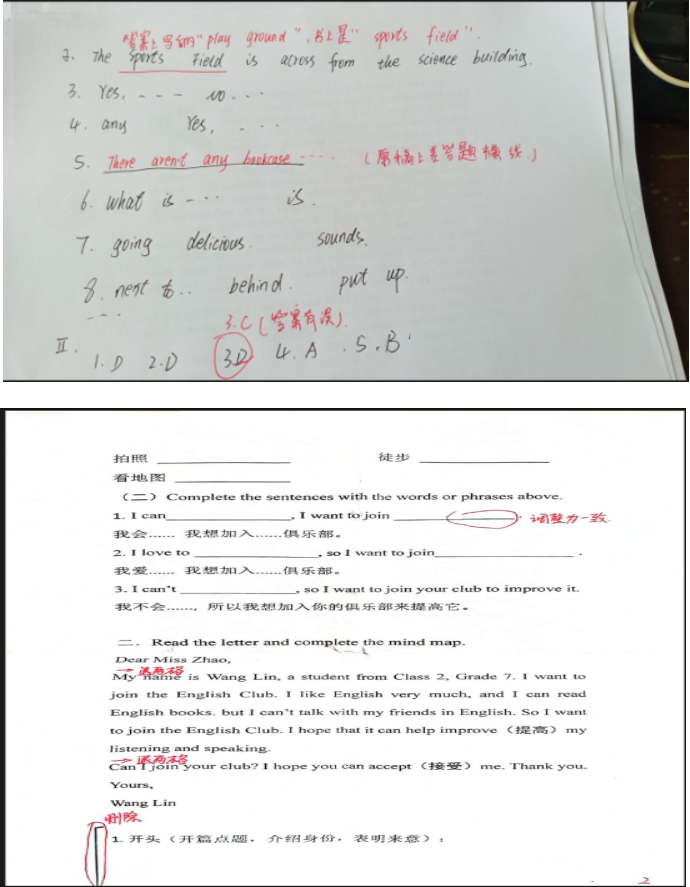 答案上写的"play ground",书上是"sports field".
2. The Sports Field is across from the science building.
3. Yes, - - - no - - -
4. any Yes, - - -
5. There aren't any bookcase - - - - (原稿上是答题横线.)
6. what is - - - is.
7. going delicious. sounds.
8. next to.. behind. put up.
- - -
3.C (答案有误).
II. 1.D 2.D 3.D 4.A .5.B.
拍照 ____________ 徒步 ____________
看地图 ____________
(二) Complete the sentences with the words or phrases above.
1. I can____________, I want to join ____________. 调整为一致.
我会…… 我想加入……俱乐部。
2. I love to ____________, so I want to join____________ .
我爱…… 我想加入……俱乐部。
3. I can't ____________, so I want to join your club to improve it.
我不会……,所以我想加入你的俱乐部来提高它。
二. Read the letter and complete the mind map.
Dear Miss Zhao,
→退两格
My name is Wang Lin, a student from Class 2, Grade 7. I want to
join the English Club. I like English very much, and I can read
English books. but I can't talk with my friends in English. So I want
to join the English Club. I hope that it can help improve(提高)my
listening and speaking.
→退两格
Can I join your club? I hope you can accept(接受)me. Thank you.
Yours,
Wang Lin
删除
1. 开头(开篇点题, 介绍身份, 表明来意):
2